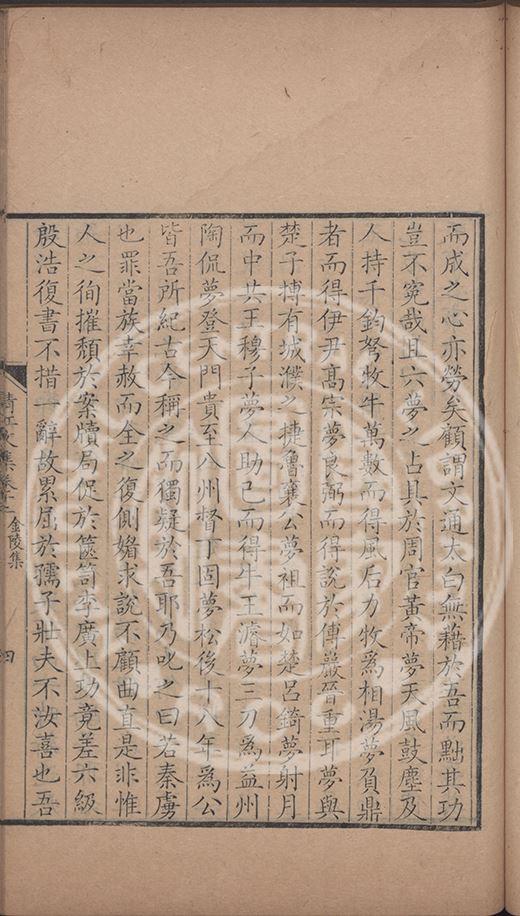 而成之心亦勞矣顧謂文通太白無藉於吾而黜其功
豈不寃哉且六夢之占具於周官黃帝夢天風鼓塵及
人持千鈞弩牧牛萬數而得風后力牧爲相湯夢負鼎
者而得伊尹髙宗夢良弼而得說於傅巖晉重耳夢與
楚子搏有城濮之捷魯襄公夢祖而如楚呂錡夢射月
而中共王穆子夢人助已而得牛王濬夢三刀爲益州
陶侃夢登天門貴至八州督丁固夢松後十八年爲公
皆吾所紀古今稱之而獨疑於吾耶乃叱之曰若秦虜
也罪當族幸赦而全之復側媚求說不顧曲直是非惟
人之徇摧頹於案牘局促於篋笥李廣上功竟差六級
殷浩復書不措一辭故累屈於孺子壯夫不汝喜也吾
清江文集
金陵集
四